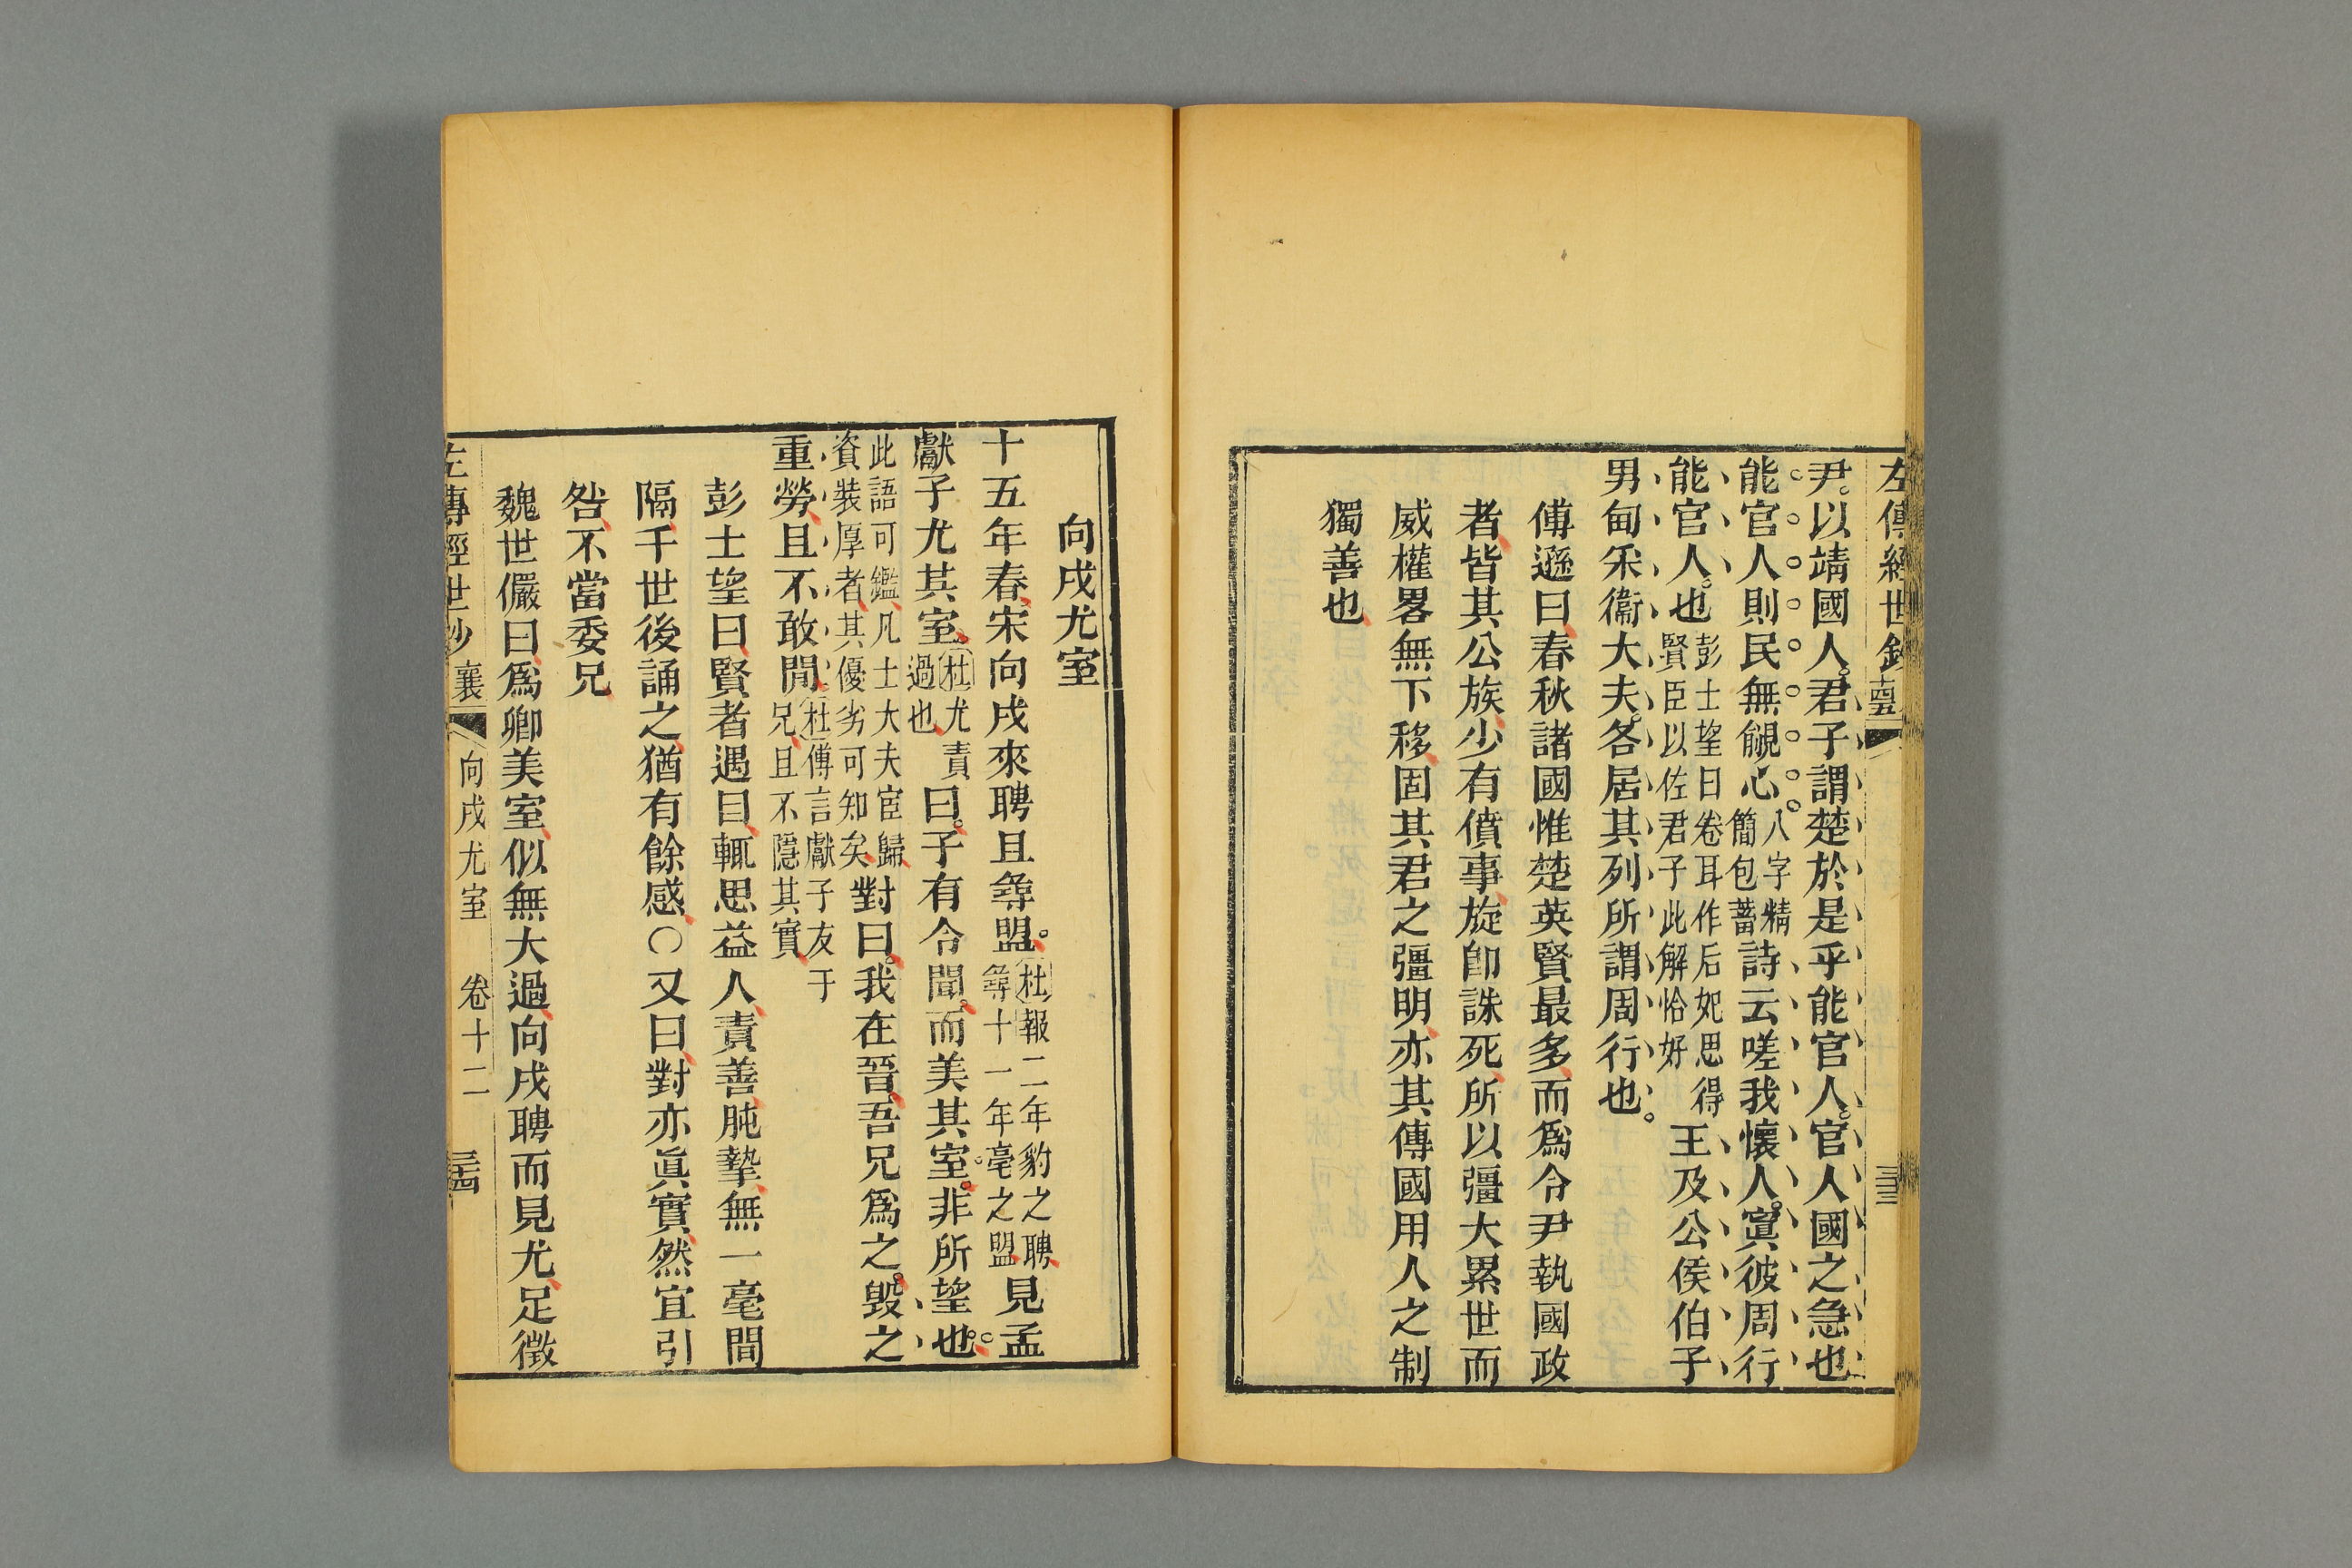 左傳經世鈔
尹以靖國人君子謂楚於是乎能官人官人國之急也
能官人則民無覦心八字精簡包蓄詩云嗟我懷人寘彼周行
能官人也彭士望曰卷耳作后妃思得賢臣以佐君子此解恰好王及公侯伯子
男甸采衞大夫各居其列所謂周行也
傅遜曰春秋諸國惟楚英賢最多而爲令尹執國政
者皆其公族少有僨事旋卽誅死所以彊大累世而
威權畧無下移固其君之彊明亦其傳國用人之制
獨善也
向戌尤室
十五年春宋向戌來聘且尋盟杜報二年豹之聘尋十一年亳之盟見孟
獻子尤其室杜尤責過也曰子有令聞而美其室非所望也
此語可鑑凡士大夫宦歸資裝厚者其優劣可知矣對曰我在晉吾兄爲之毀之
重勞且不敢閒杜傳言獻子友于兄且不隱其實
彭士望曰賢者遇目輒思益人責善肫摯無一毫間
隔千世後誦之猶有餘感〇又曰對亦眞實然宜引
咎不當委兄
魏世儼曰爲卿美室似無大過向戌聘而見尤足徵
左傳經世鈔 襄 向戌尤室 卷十二 三四